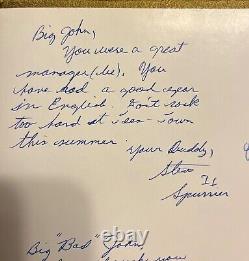 Big John,
You were a great
manager (die). You
have had a good year
in English. Dont rock
too hard at Teen-Town
this summer
Your Buddy,
Steve
Spurrier II
Big "Bad" John,
you